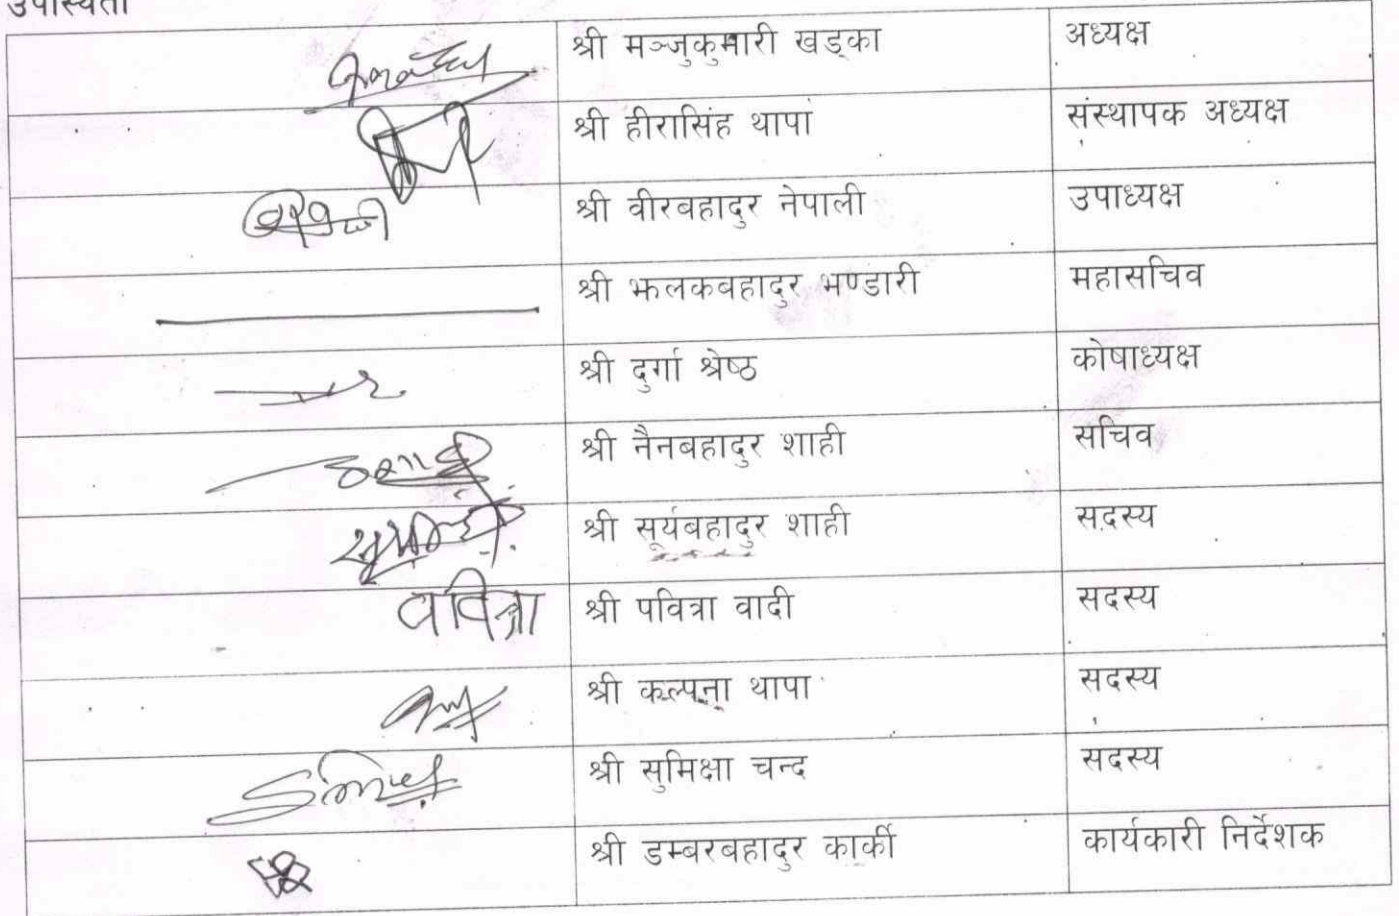 उपस्थिती
श्री मञ्जुकुमारी खड्का अध्यक्ष
श्री हीरासिंह थापा संस्थापक अध्यक्ष
श्री वीरबहादुर नेपाली उपाध्यक्ष
श्री झलकबहादुर भण्डारी महासचिव
श्री दुर्गा श्रेष्ठ कोषाध्यक्ष
श्री नैनबहादुर शाही सचिव
श्री सूर्यबहादुर शाही सदस्य
पवित्रा श्री पवित्रा वादी सदस्य
श्री कल्पना थापा सदस्य
श्री सुमिक्षा चन्द सदस्य
श्री डम्बरबहादुर कार्की कार्यकारी निर्देशक